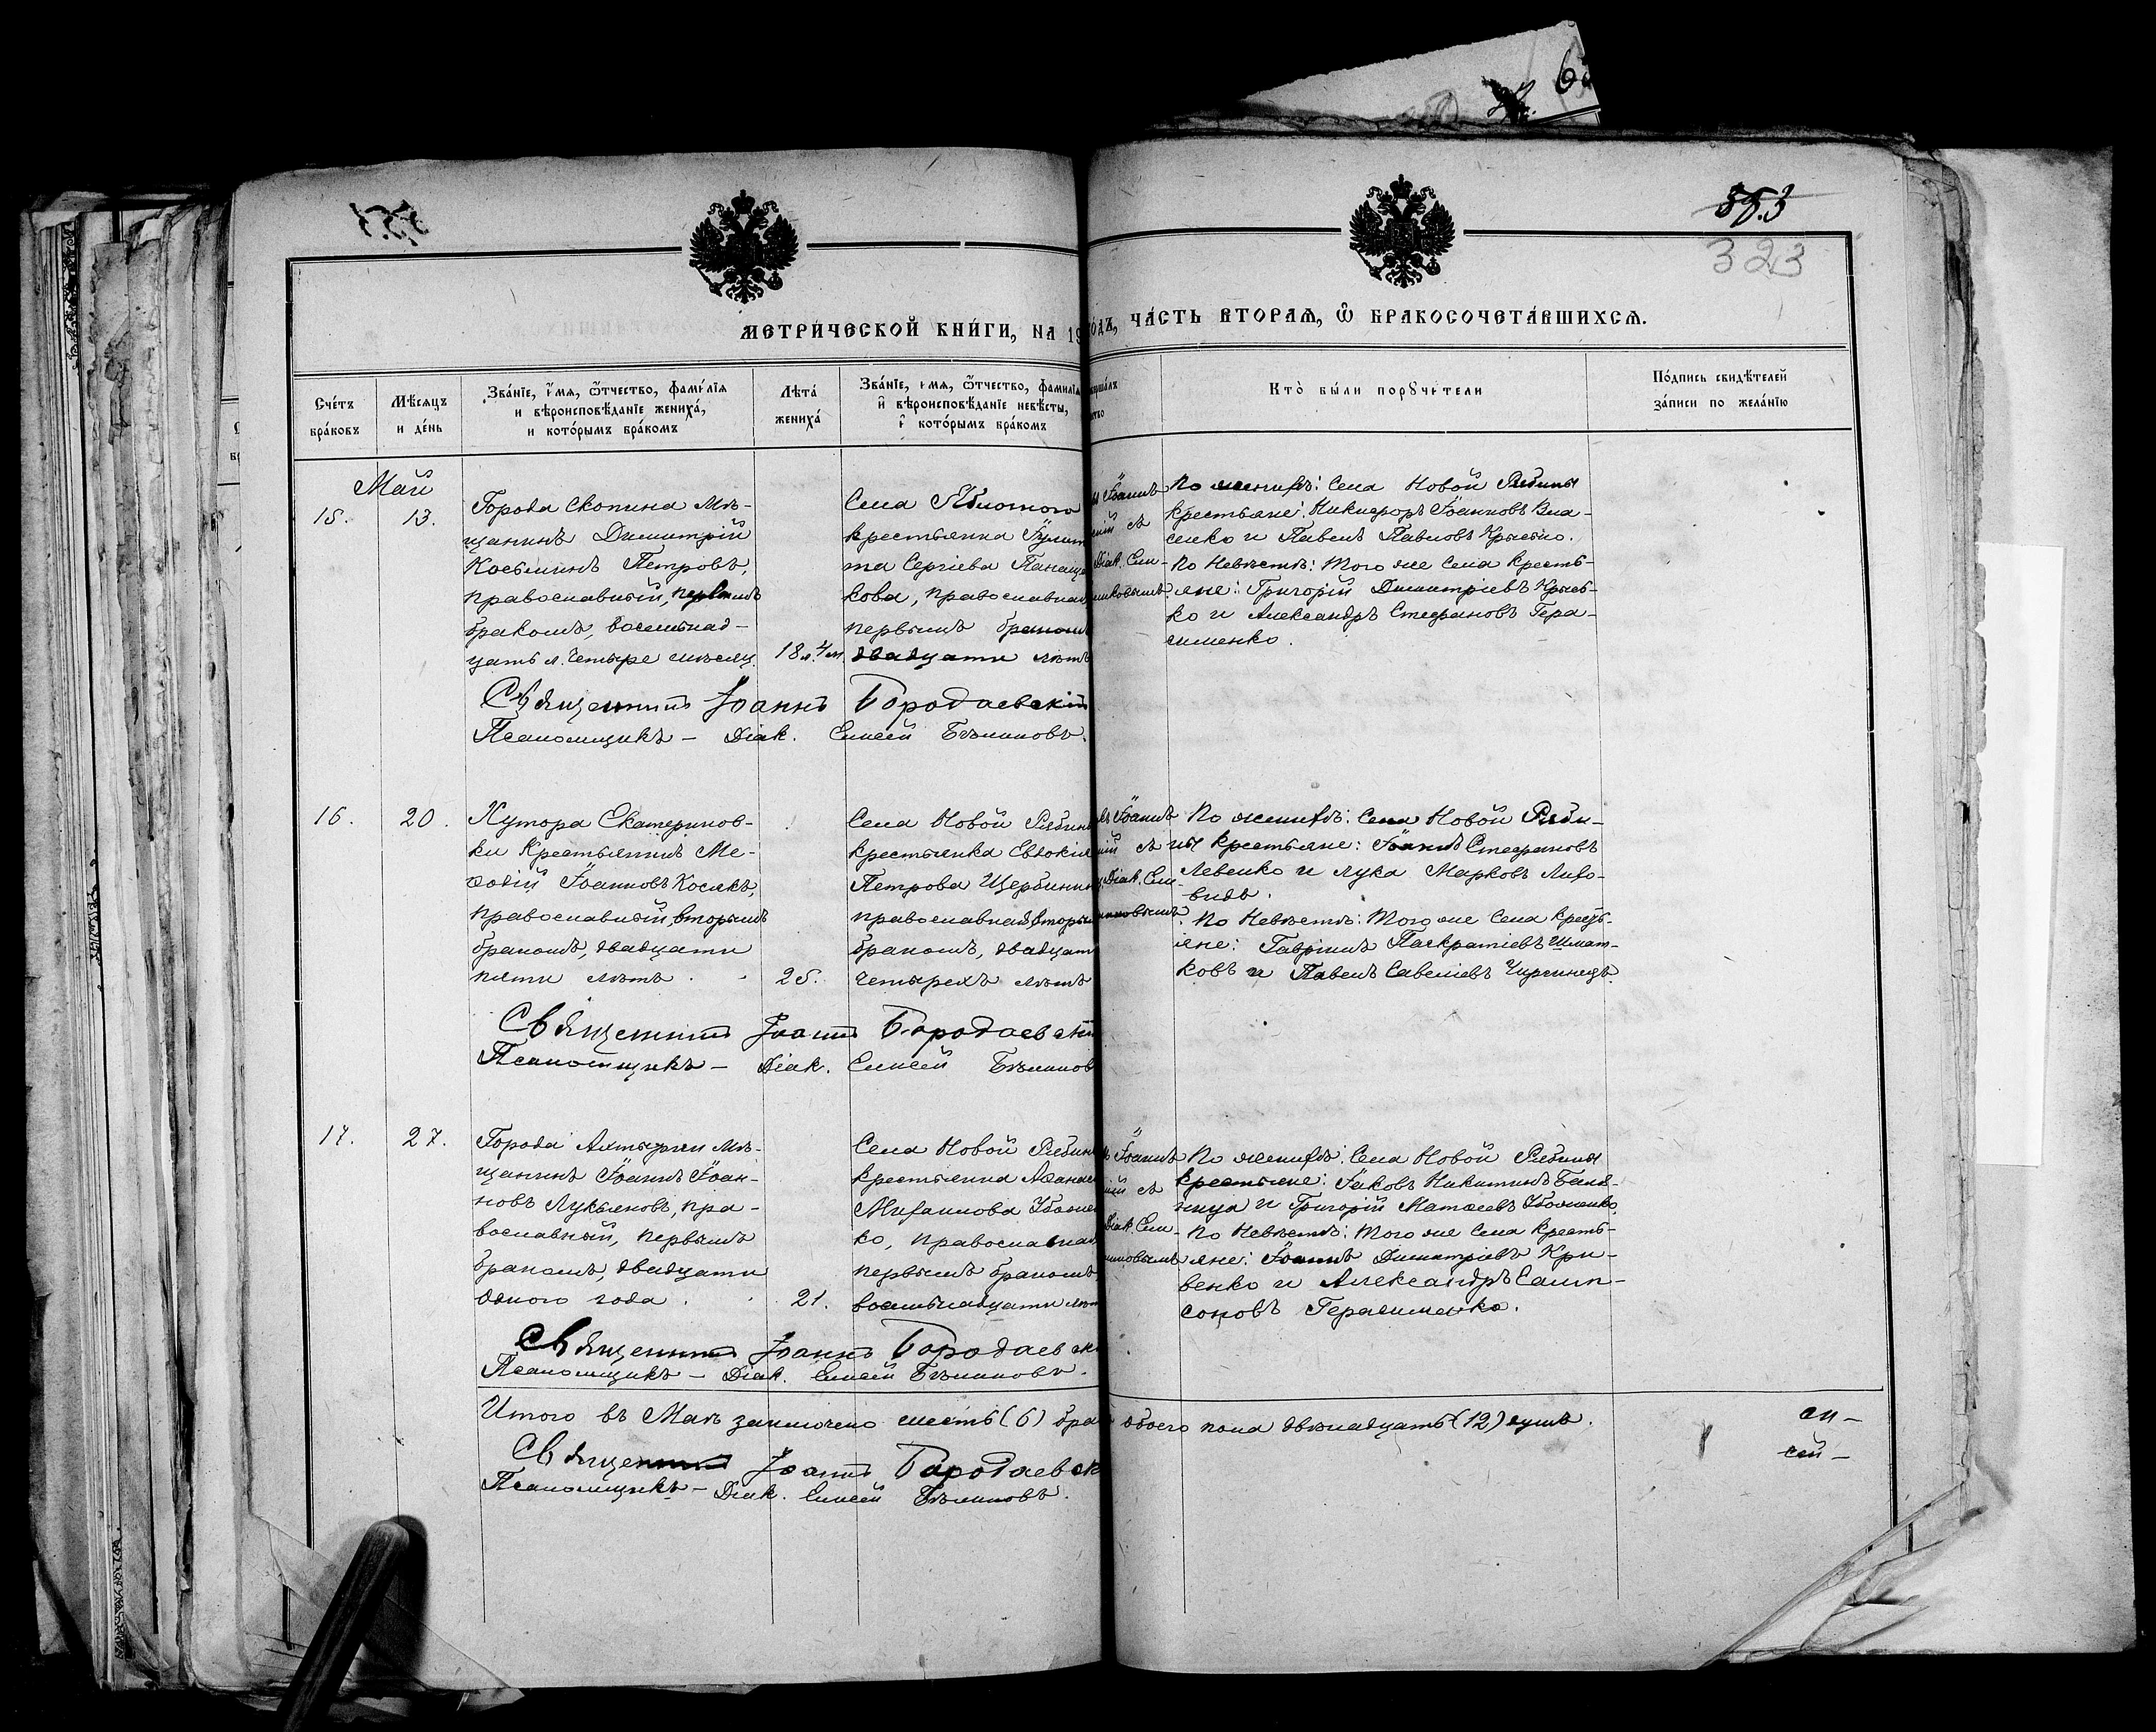 323
МЕТРИ́ЧЕСКОЙ КНИ́ГИ, НА 19
О́ДЪ, ЧА́СТЬ ВТОРАѦ, Ѿ БРАКОСОЧЕТА́ВШИХСѦ.
Сче́тъ
бра́ковъ
Мѣ́сѧцъ
и де́нь
Зва́нїе, и́мѧ, ѿтчество, фами́лїѧ
и вѣроисповѣ́данїе жениха́,
и кото́рымъ бра́комъ
Лѣта́
жениха́
Зва́нїе, и́мѧ, ѿтчество, фамилїѧ
и вѣроисповѣ́данїе невѣ́сты,
и кото́рымъ бра́комъ
Кто̀ бы́ли порꙋчи́тели
По́дпись свидѣ́телей
за́писи по жела́нїю
Май
15.
13.
Города Скопина мѣ-
щанинъ Димитрій
Косьминъ Петровъ,
православный, первымъ
бракомъ, восемнад-
цать л. четыре мѣсяц.
18 л. 4 м.
Села Яблочного
крестьянка Іулит
та Сергіева Панаще
кова, православная
первымъ браком
двадцати лѣтъ
Іоаннъ
ій съ
Діак. Ели-
никовымъ
По женихѣ: Села Новой Рябины
крестьяне: Никифоръ Іоанновъ Вла-
сенко и Павелъ Павловъ Крысько.
По невѣстѣ: Того же села кресть-
яне: Григорій Димитріевъ Крысь-
ко и Александръ Стефановъ Гера-
сименко.
Священникъ Іоаннъ Бородаевскій
Псаломщикъ – Діак. Елисей Бѣликовъ.
16.
20.
Хутора Екатеринов-
ки крестьянинъ Ме-
ѳодій Іоанновъ Косякъ,
православный, вторымъ
бракомъ, двадцати
пяти лѣтъ.
25.
Села Новой Рябин
крестьянка Евдокія
Петрова Щербинин
православная, вторым
бракомъ, двадцат
четырехъ лѣтъ
Іоаннъ
ій съ
Діак. Ели-
никовымъ
По женихѣ: Села Новой Ряби-
ны крестьяне: Іоаннъ Стефановъ
Левенко и Лука Марковъ Лихо-
видъ.
По невѣстѣ: Того же села кресть-
яне: Гавріилъ Панкратіевъ Шмат-
ковъ и Павелъ Савеліевъ Чирчинецъ.
Священникъ Іоаннъ Бородаевскі
Псаломщикъ – Діак. Елисей Бѣликов
17.
27.
Города Ахтырки мѣ-
щанинъ Іоаннъ Іоан-
новъ Лукьяновъ, пра-
вославный, первымъ
бракомъ, двадцати
одного года.
21.
Села Новой Рябин
крестьянка Аѳанас
Михаилова Убожен
ко, православная
первымъ бракомъ,
восемнадцати лѣт
Іоаннъ
ій съ
Діак. Ели-
никовымъ
По женихѣ: Села Новой Рябины
крестьяне: Іаковъ Никитинъ Бала-
ница и Григорій Матѳіевъ Убоженко.
По невѣстѣ: Того же села кресть-
яне: Іоаннъ Димитріевъ Кри-
венко и Александръ Самп-
соновъ Герасименко.
Священникъ Іоаннъ Бородаевск
Псаломщикъ – Діак. Елисей Бѣликовъ.
Итого въ Маѣ заключено шесть (6) бра
обоего пола двѣнадцать (12) душъ.
Священникъ Іоаннъ Бородаевск
Псаломщикъ – Діак. Елисей Бѣликовъ.